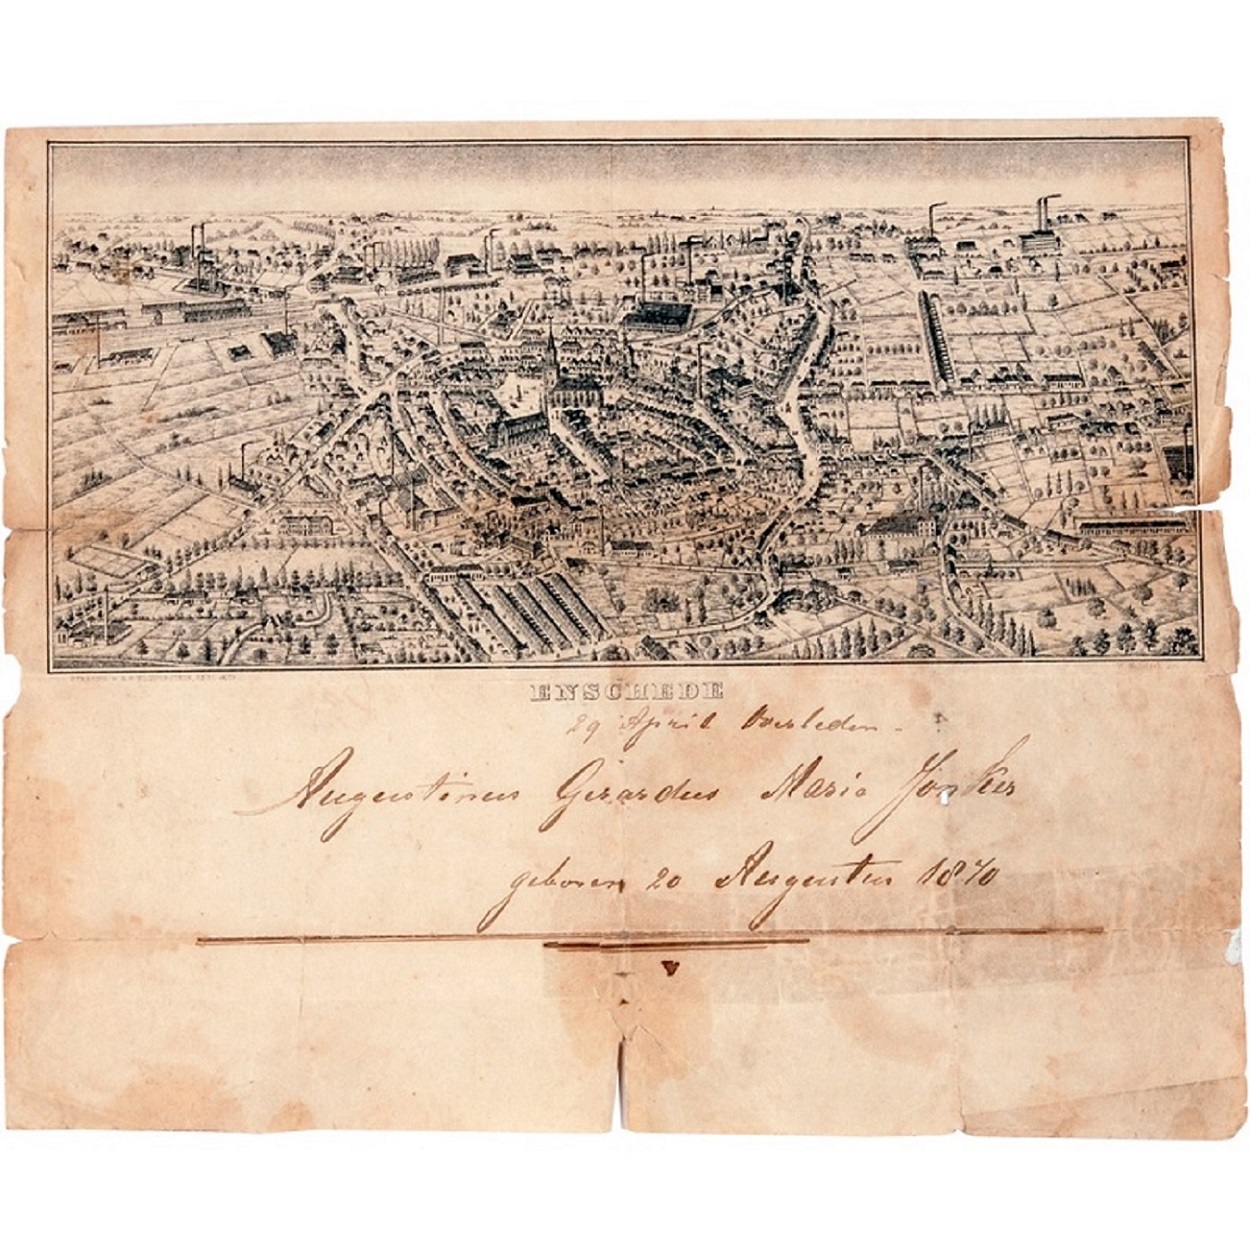 ENSCHEDE
29 April Overleden.
Augustinus Girardus Maria Jonker
geboren 20 Augustus 1870